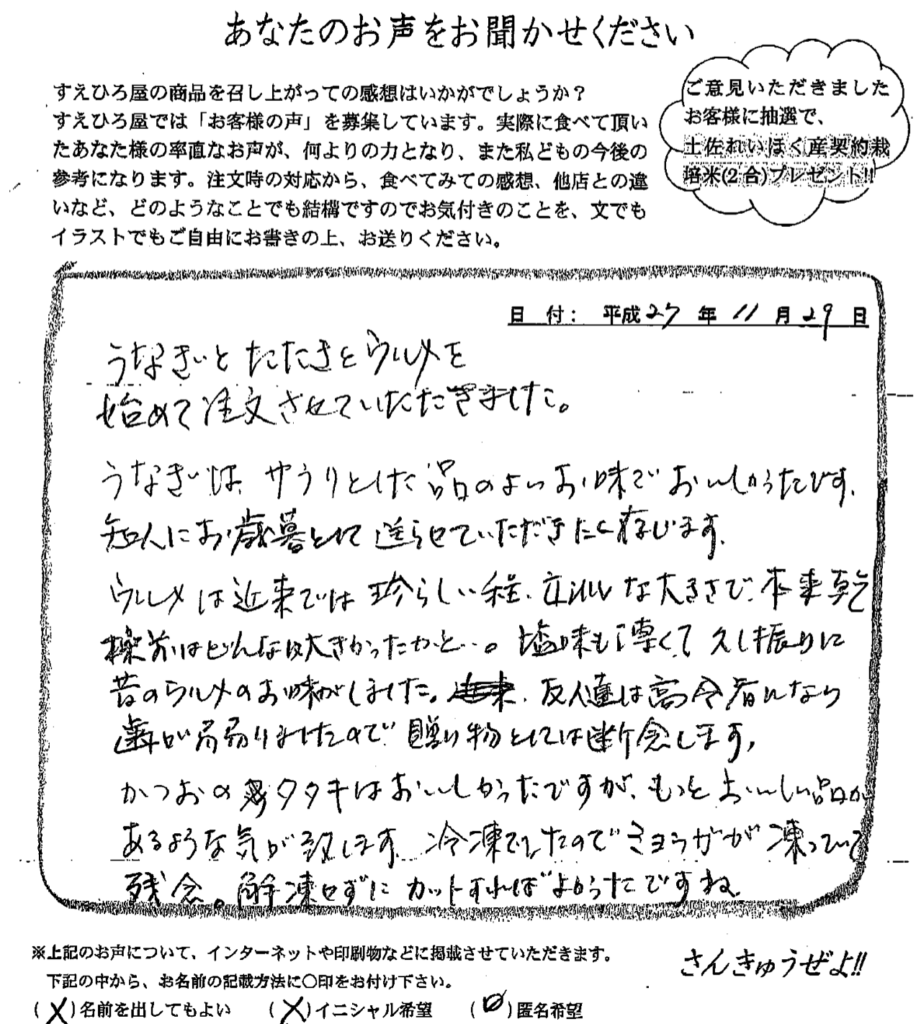 あなたのお声をお聞かせください
すえひろ屋の商品を召し上がっての感想はいかがでしょうか？
すえひろ屋では「お客様の声」を募集しています。実際に食べて頂い
たあなた様の率直なお声が、何よりの力となり、また私どもの今後の
参考になります。注文時の対応から、食べてみての感想、他店との違
いなど、どのようなことでも結構ですのでお気付きのことを、文でも
イラストでもご自由にお書きの上、お送りください。
ご意見いただきました
お客様に抽選で、
土佐れいほく産契約栽
培米(2合)プレゼント!!
日 付： 平成27年11月29日
うなぎとたたきとウルメを
始めて注文させていただきました。
うなぎは、サラリとした品のよいお味でおいしかったです。
知人にお歳暮として送らせていただきたく存じます。
ウルメは近来では珍らしい程、立派な大きさで、本来乾
燥前はどんなに大きかったかと…。塩味も薄くて久し振りに
昔のウルメのお味がしました。友人達は高令者になり
歯が弱りましたので、贈り物としては断念します。
かつおのタタキはおいしかったですが、もっとおいしい品が
あるような気が致します。冷凍でしたのでミョウガが凍っていて
残念。解凍せずにカットすればよかったですね。
※上記のお声について、インターネットや印刷物などに掲載させていただきます。
下記の中から、お名前の記載方法に○印をお付け下さい。
(X)名前を出してもよい (X)イニシャル希望 (○)匿名希望
さんきゅうぜよ!!